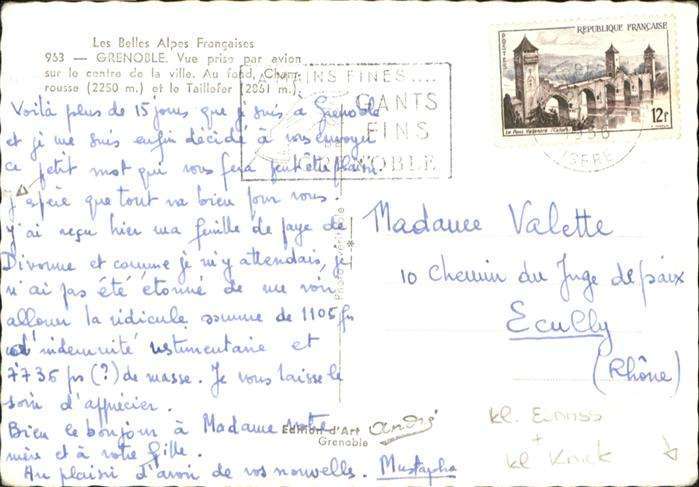 Les Belles Alpes Françaises
953 — GRENOBLE. Vue prise par avion
sur le centre de la ville. Au fond, Cham-
rousse (2250 m.) et le Taillefer (2861 m.)
MAINS FINES....
GANTS
FINS
GRENOBLE
REPUBLIQUE FRANÇAISE
POSTES
Le Pont Valentré (Cahors)
12f
1956
ISERE
Voilà plus de 15 jours que je suis à Grenoble
et je me suis enfin décidé à vous envoyer
ce petit mot qui vous fera peut être plaisir.
J'espère que tout va bien pour vous.
J'ai reçu hier ma feuille de paye de
Divonne et comme je m'y attendais, je
n'ai pas été étonné de me voir
allouer la ridicule somme de 1105 frs
d'indemnité vestimentaire et
7735 frs (?) de masse. Je vous laisse le
soin d'apprécier.
Bien le bonjour à Madame votre
mère et à votre fille.
Au plaisir d'avoir de vos nouvelles. Mustapha
Madame Valette
10 Chemin du Juge de paix
Ecully
(Rhône)
Edition d'Art André
Grenoble
kl. Einriss
+
kl Knick